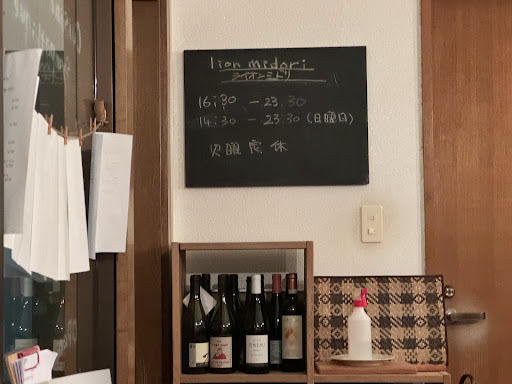 lion midori
ライオンミドリ
16:30 - 23.30
14:30 - 23:30 (日曜日)
火曜定休
PINEAU